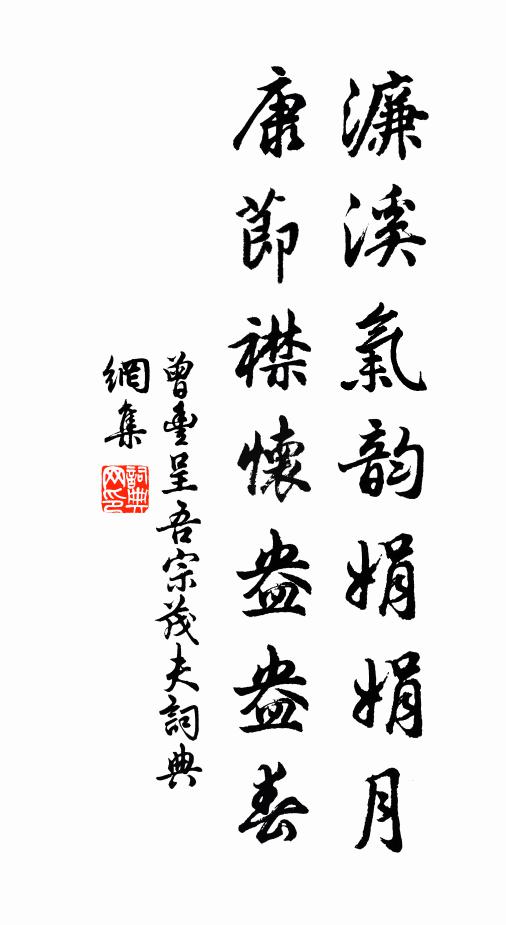 濂溪氣韵娟娟月
康節襟懷盎盎春
曾豐呈吾宗茂夫詞典
網集
詞典
网印